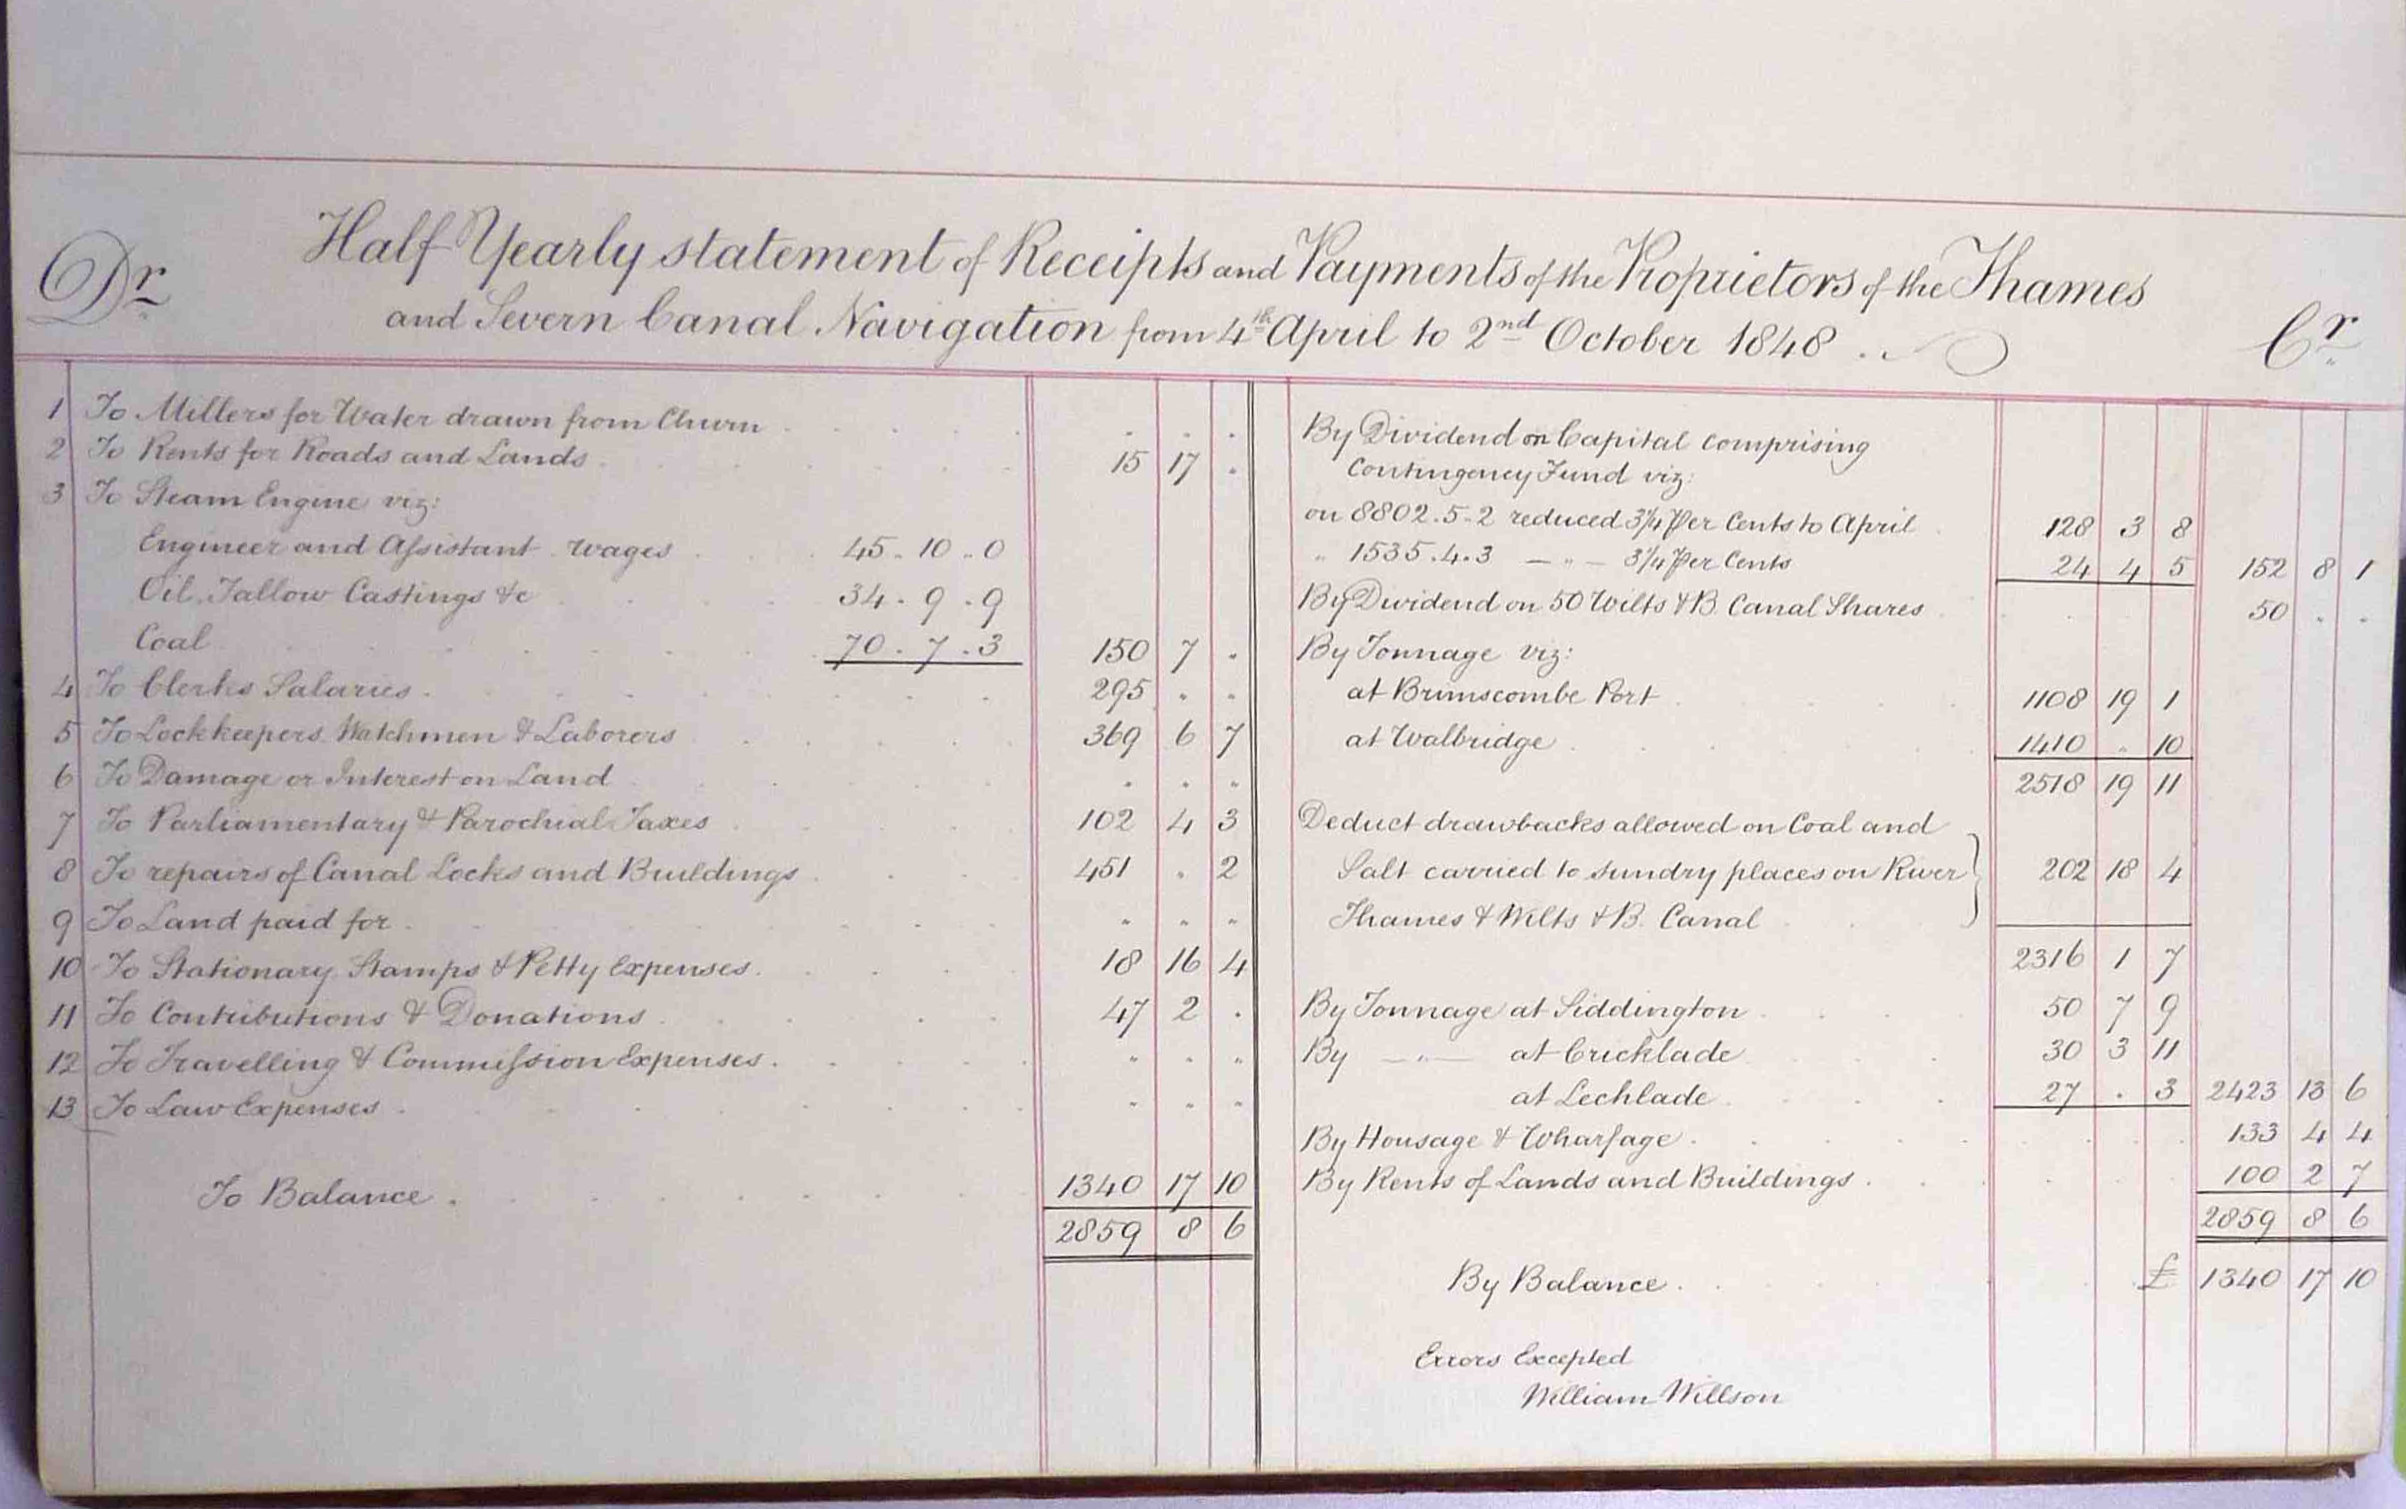 Dr
Half Yearly statement of Receipts and Payments of the Proprietors of the Thames
and Severn Canal Navigation from 4th April to 2nd October 1848
Cr
1 To Millers for Water drawn from Churn . . .
2 To Rents for Roads and Lands 15 17 .
3 To Steam Engine viz:
Engineer and Assistant wages 45 . 10 . 0
Oil, Tallow Castings &c 34 . 9 . 9
Coal 70 . 7 . 3 150 7 .
4 To Clerks Salaries 295 . .
5 To Lockkeepers Watchmen & Laborers 369 6 7
6 To Damage or Interest on Land . . .
7 To Parliamentary & Parochial Taxes 102 4 3
8 To repairs of Canal Locks and Buildings 451 . 2
9 To Land paid for " " "
10 To Stationary Stamps & Petty Expenses 18 16 4
11 To Contributions & Donations 47 2 .
12 To Travelling & Commission Expenses " " "
13 To Law Expenses " " "
To Balance 1340 17 10
2859 8 6
By Dividend on Capital comprising
Contingency Fund viz:
on 8802 . 5 . 2 reduced 3¼ Per Cents to April 128 3 8
" 1535 . 4 . 3 — " — 3¼ Per Cents 24 4 5 152 8 1
By Dividend on 50 Wilts & B. Canal Shares 50 . .
By Tonnage viz:
at Brimscombe Port 1108 19 1
at Walbridge 1410 " 10
2518 19 11
Deduct drawbacks allowed on Coal and
Salt carried to sundry places on River 202 18 4
Thames & Wilts & B. Canal
2316 1 7
By Tonnage at Siddington 50 7 9
By — " — at Cricklade 30 3 11
at Lechlade 27 . 3 2423 13 6
By Housage & Wharfage 133 4 4
By Rents of Lands and Buildings 100 2 7
2859 8 6
By Balance £ 1340 17 10
Errors Excepted
William Willson